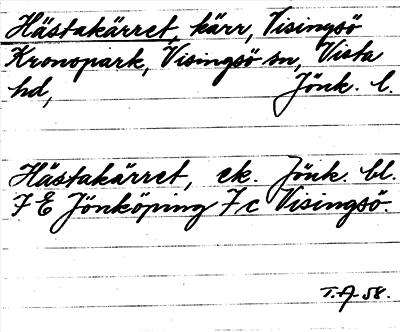 Hästakärret, kärr, Visingsö
Kronopark, Visingsö sn, Vista
hd, Jönk. l.
Hästakärret, ek. Jönk. bl.
7 E Jönköping 7 c Visingsö.
T.A-58.